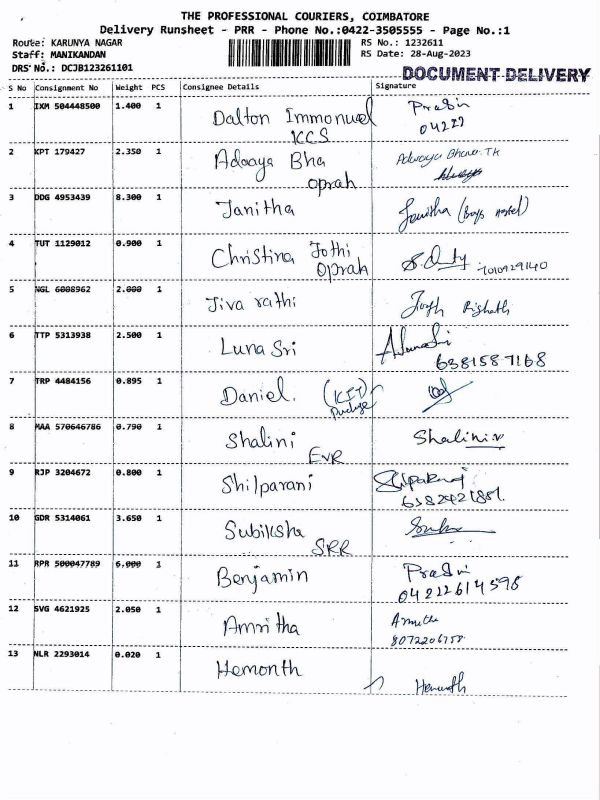 THE PROFESSIONAL COURIERS, COIMBATORE
Delivery Runsheet - PRR - Phone No.:0422-3505555 - Page No.:1
Route: KARUNYA NAGAR RS No.: 1232611
Staff: MANIKANDAN RS Date: 28-Aug-2023
DRS No.: DCJB123261101 DOCUMENT DELIVERY
S No Consignment No Weight PCS Consignee Details Signature
1 IXM 504448500 1.400 1 Dalton Immonuel
KCS 04222
2 KPT 179427 2.350 1 Adwaya Bha Adwaya Bhava.TK
oprah
3 DDG 4953439 8.300 1 Janitha Janitha (Boys hostel)
4 TUT 1129012 0.900 1 Christina Jothi
Oprah 7010929140
5 NGL 6008962 2.000 1 Jiva rathi
6 TTP 5313938 2.500 1 Luna Sri
6381587168
7 TRP 4484156 0.895 1 Daniel.
8 MAA 570646786 0.790 1 Shalini Shalini.v
EVR
9 RJP 3204672 0.800 1 Shilparani
10 GDR 5314061 3.650 1 Subiksha
SRR
11 RPR 500047789 6.000 1 Benjamin
04222614598
12 SVG 4621925 2.050 1 Amritha Amritha
13 NLR 2293014 0.020 1 Hemonth Hemonth